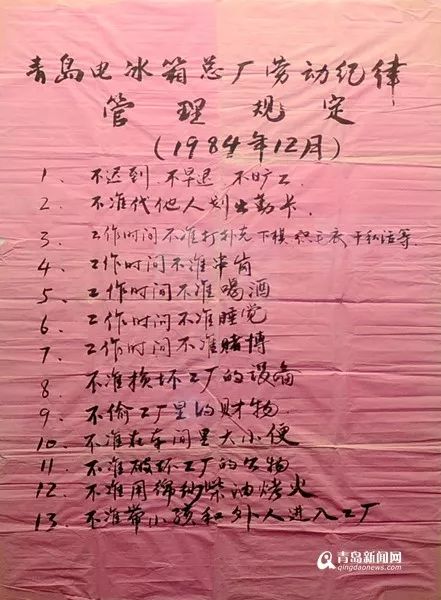 青岛电冰箱总厂劳动纪律
管理规定
(1984年12月)
1、不迟到 不早退 不旷工
2、不准代他人划出勤卡
3、工作时间不准打扑克 下棋 织毛衣 干私活等
4、工作时间不准串岗
5、工作时间不准喝酒
6、工作时间不准睡觉
7、工作时间不准赌博
8、不准损坏工厂的设备
9、不偷工厂里的财物
10、不准在车间里大小便
11、不准破坏工厂的公物
12、不准用绵纱柴油烤火
13、不准带小孩和外人进入工厂
青岛新闻网
qingdaonews.com